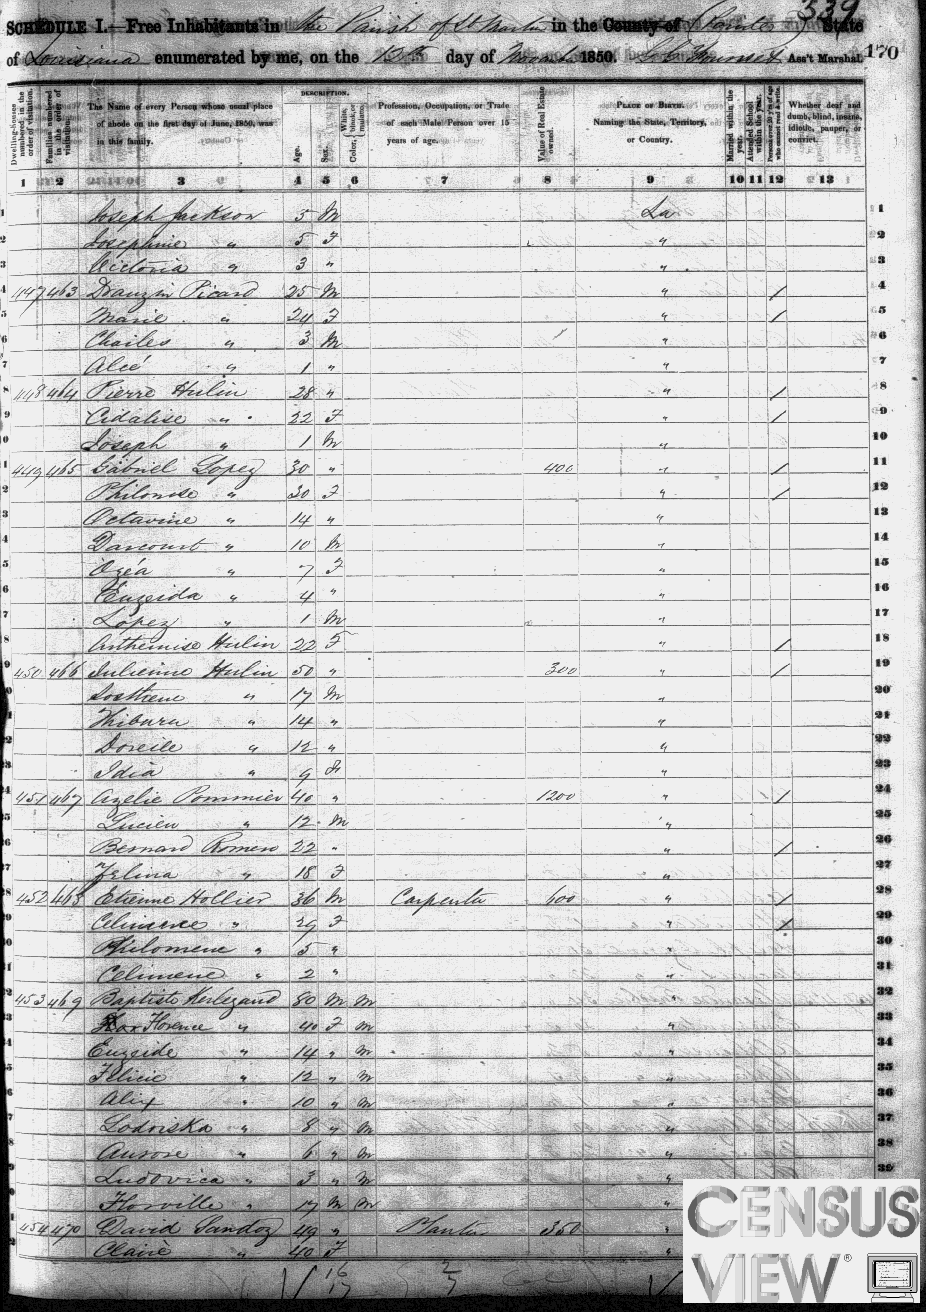 339
SCHEDULE I.—Free Inhabitants in the Parish of St Martin in the County of State
of Louisiana enumerated by me, on the 13th day of November 1850. Ass't Marshal. 170
Dwelling-houses numbered in the order of visitation.
Families numbered in the order of visitation.
The Name of every Person whose usual place of abode on the first day of June, 1850, was in this family.
DESCRIPTION.
Age.
Sex.
Color, White, black, or mulatto.
Profession, Occupation, or Trade of each Male Person over 15 years of age.
Value of Real Estate owned.
PLACE OF BIRTH. Naming the State, Territory, or Country.
Married within the year.
Attended School within the year.
Persons over 20 y'rs of age who cannot read & write.
Whether deaf and dumb, blind, insane, idiotic, pauper, or convict.
1 2 3 4 5 6 7 8 9 10 11 12 13
1 Joseph Jackson 5 M La 1
2 Josephine " 5 F " 2
3 Victoria " 3 " " 3
4 447 463 Drauzin Picard 25 M " / 4
5 Marie " 24 F " / 5
6 Charles " 3 M " 6
7 Alcé " 1 " " 7
8 448 464 Pierre Hulin 28 " " / 8
9 Cidalise " 22 F " / 9
0 Joseph " 1 M " 10
1 449 465 Gabriel Lopez 30 " 400 " / 11
2 Philonise " 30 F " / 12
3 Octavine " 14 " " 13
4 Darcourt " 10 M " 14
5 Ozéa " 7 F " 15
6 Euzeida " 4 " " 16
7 Lopez " 1 M " 17
8 Anthemise Hulin 22 F " / 18
9 450 466 Julienne Hulin 50 " 300 " / 19
0 Sosthene " 17 M " 20
1 " 14 " " 21
2 " 12 " " 22
3 Idia " 9 F " 23
4 451 467 Azelie Pommier 40 " 1200 " / 24
5 Lucien " 12 M " 25
6 Bernard Romero 22 " " / 26
7 Zelina " 18 F " 27
8 452 468 Etienne Hollier 36 M Carpenter 600 " / 28
9 " 29 F " / 29
0 Philomene " 5 " " 30
1 Celimene " 2 " " 31
2 453 469 Baptiste 80 M M " 32
3 Florence " 40 F M " 33
4 Euzeide " 14 " M " 34
5 Felicie " 12 " M " 35
6 Alix " 10 " M " 36
7 Lodoiska " 8 " M " 37
8 Aurore " 6 " M " 38
9 Ludovica " 3 " M " 39
Florville " 17 M M "
1 454 470 David Sandoz 49 " Planter 350 "
2 Claire " 40 F "
16
17
2
7
CENSUS
VIEW®